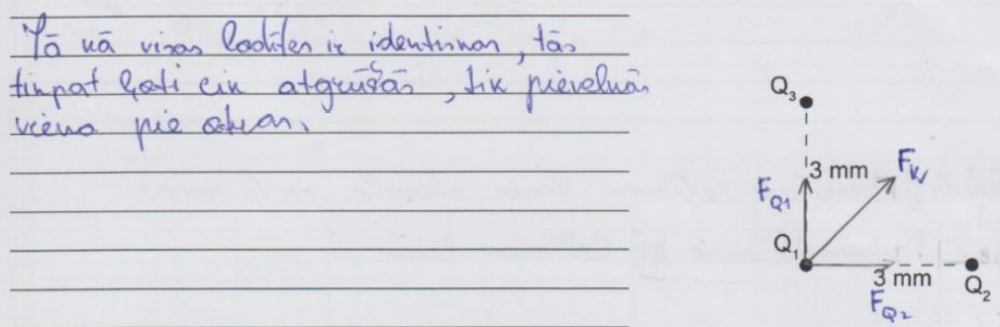 Tā kā visas lodītes ir identiskas, tās
tikpat ļoti cik atgrūšās, tik pievelkās
viena pie otras.
Q3
3 mm
FK
FQ1
Q1
3 mm
Q2
FQ2